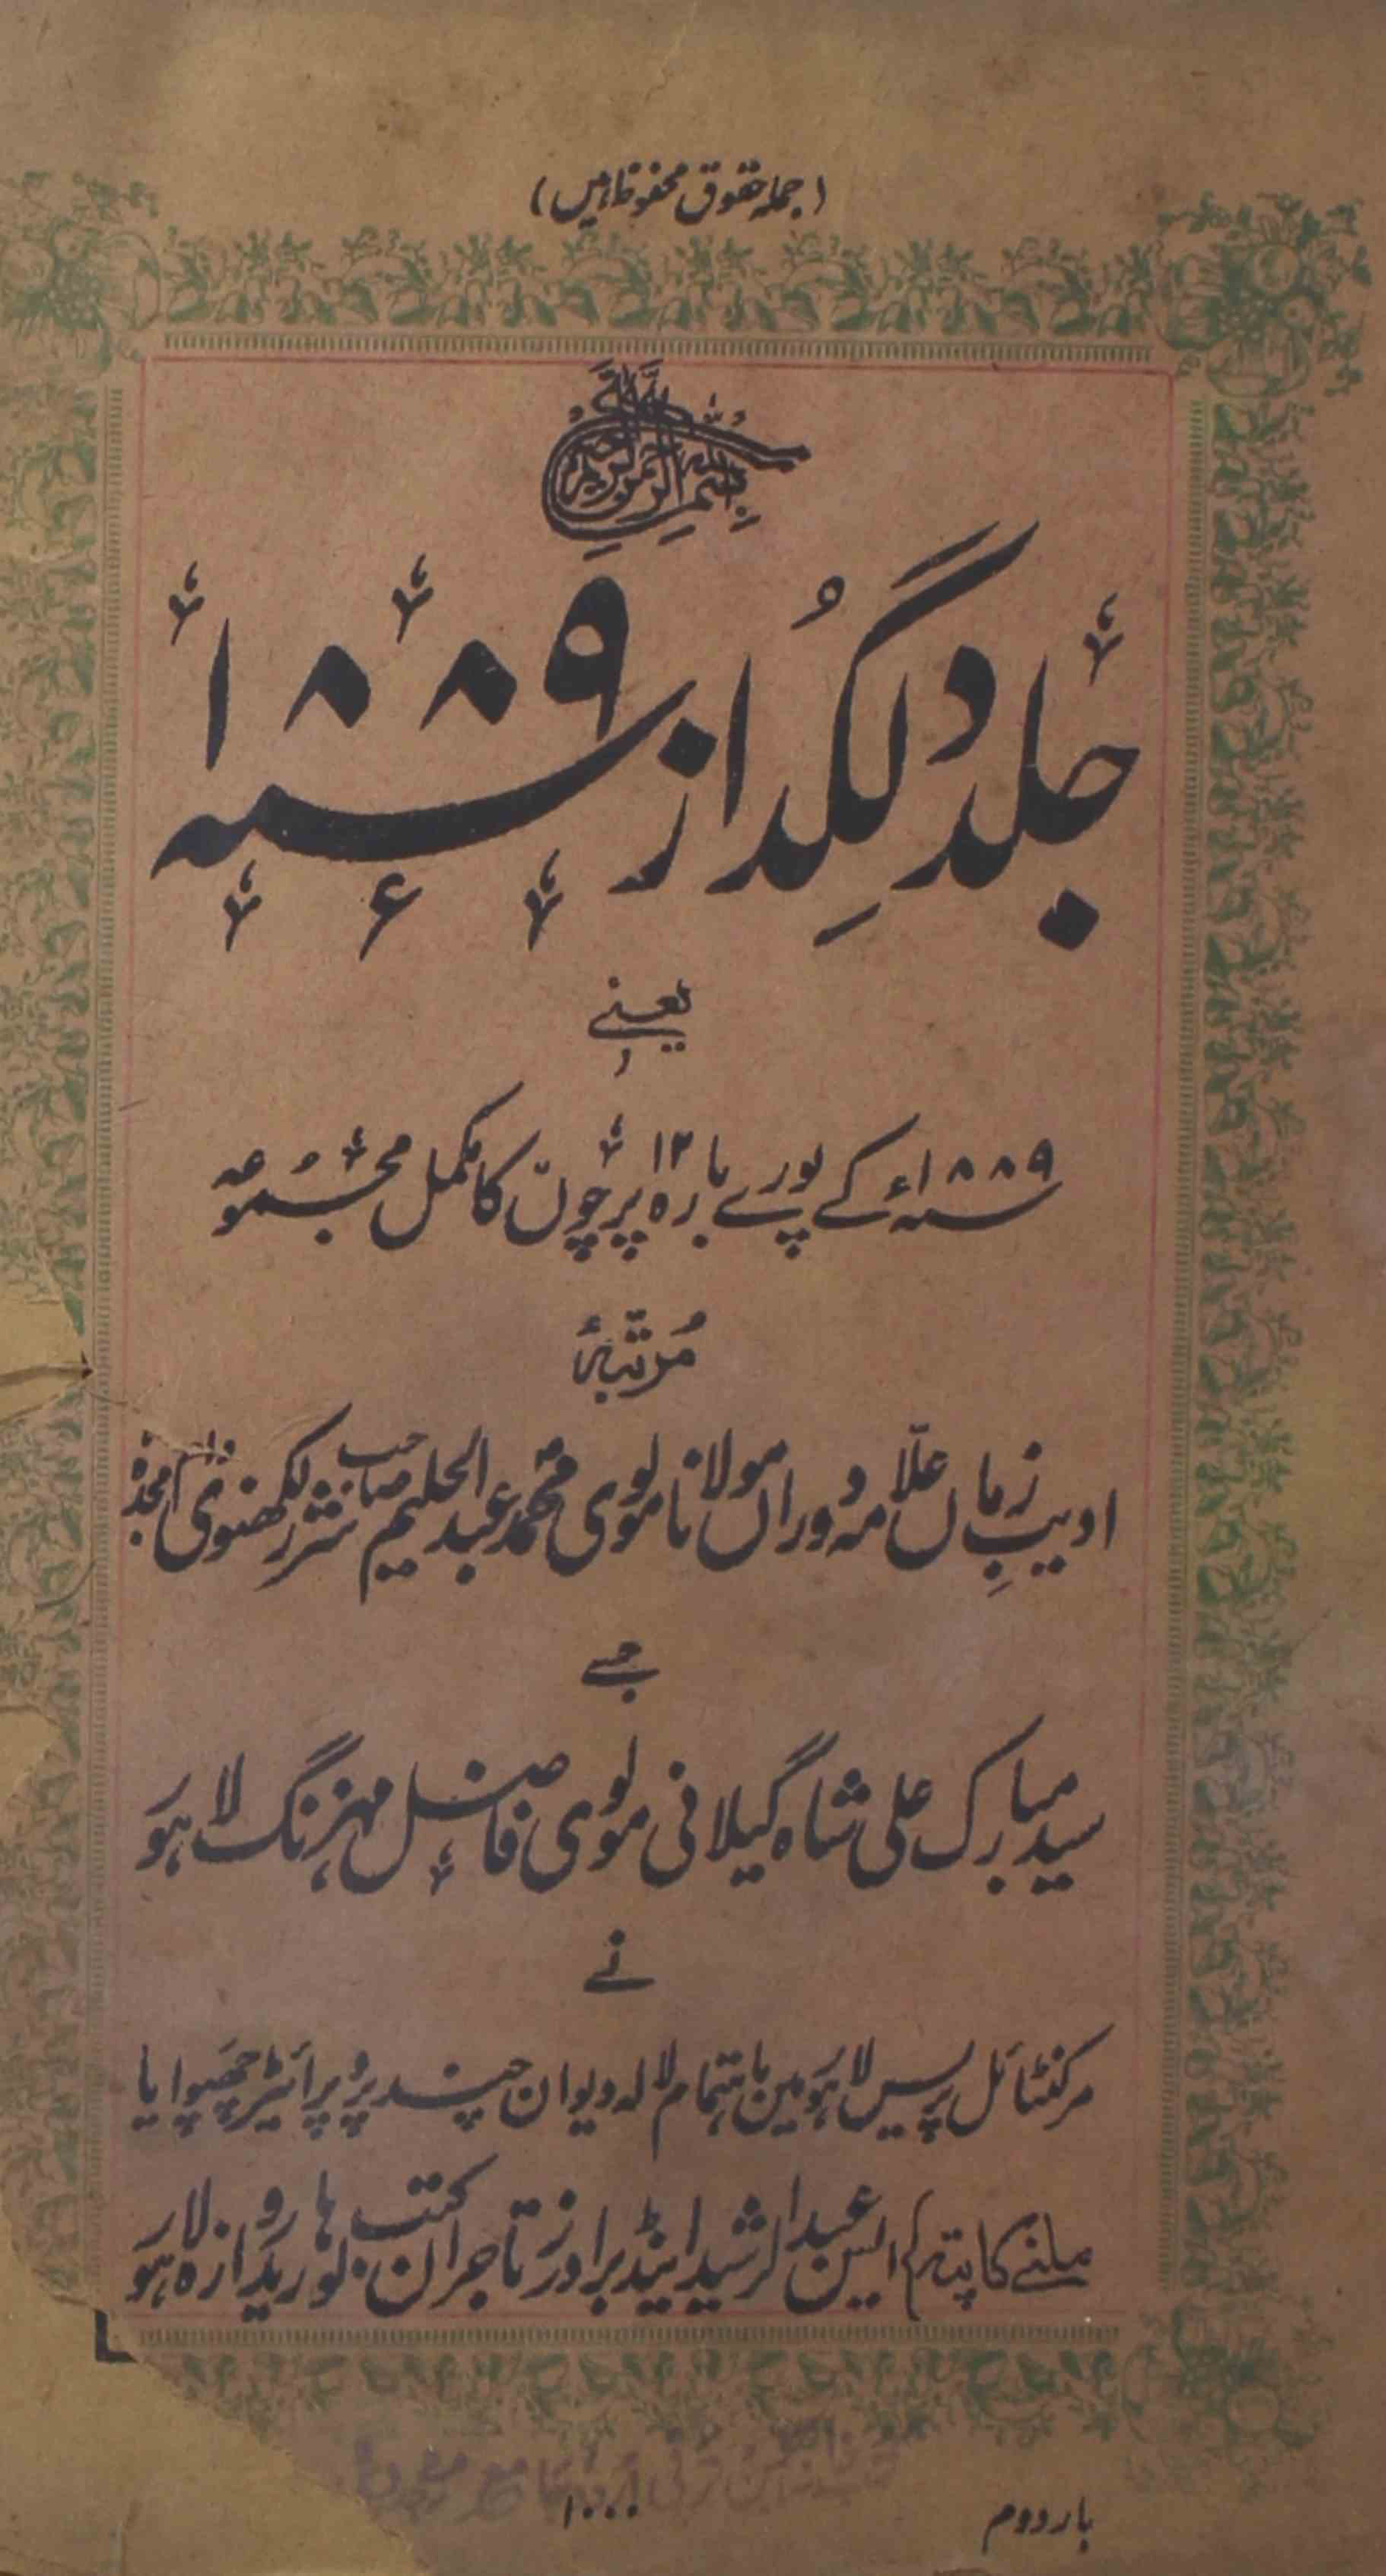 (جملہ حقوق محفوظ ہیں)
بسم اللہ الرحمن الرحیم
جلد دلگداز ۱۸۸۹ سنہ ء
یعنے
سنہ ۱۸۸۹ء کے پورے بارہ ۱۲ پرچوں کا مکمل مجموعہ
مُرتّبہٗ
ادیبِ زماں علّامہ دوراں مولانا مولوی محمد عبدالحلیم صاحب شرر لکھنوی مجدہٗ
جسے
سید مبارک علی شاہ گیلانی مولوی فاضل مہرنگ لاہور
نے
مرکنٹائل پریس لاہور مین باہتمام لالہ دیوان چند پروپرائیٹر چھپوایا
ملنے کا پتہ ایس عبدالرشید اینڈ برادرز تاجران کتب لوہاری دروازہ لاہور
انجمن ترقی اردو
۱۰۰۰
بار دوم